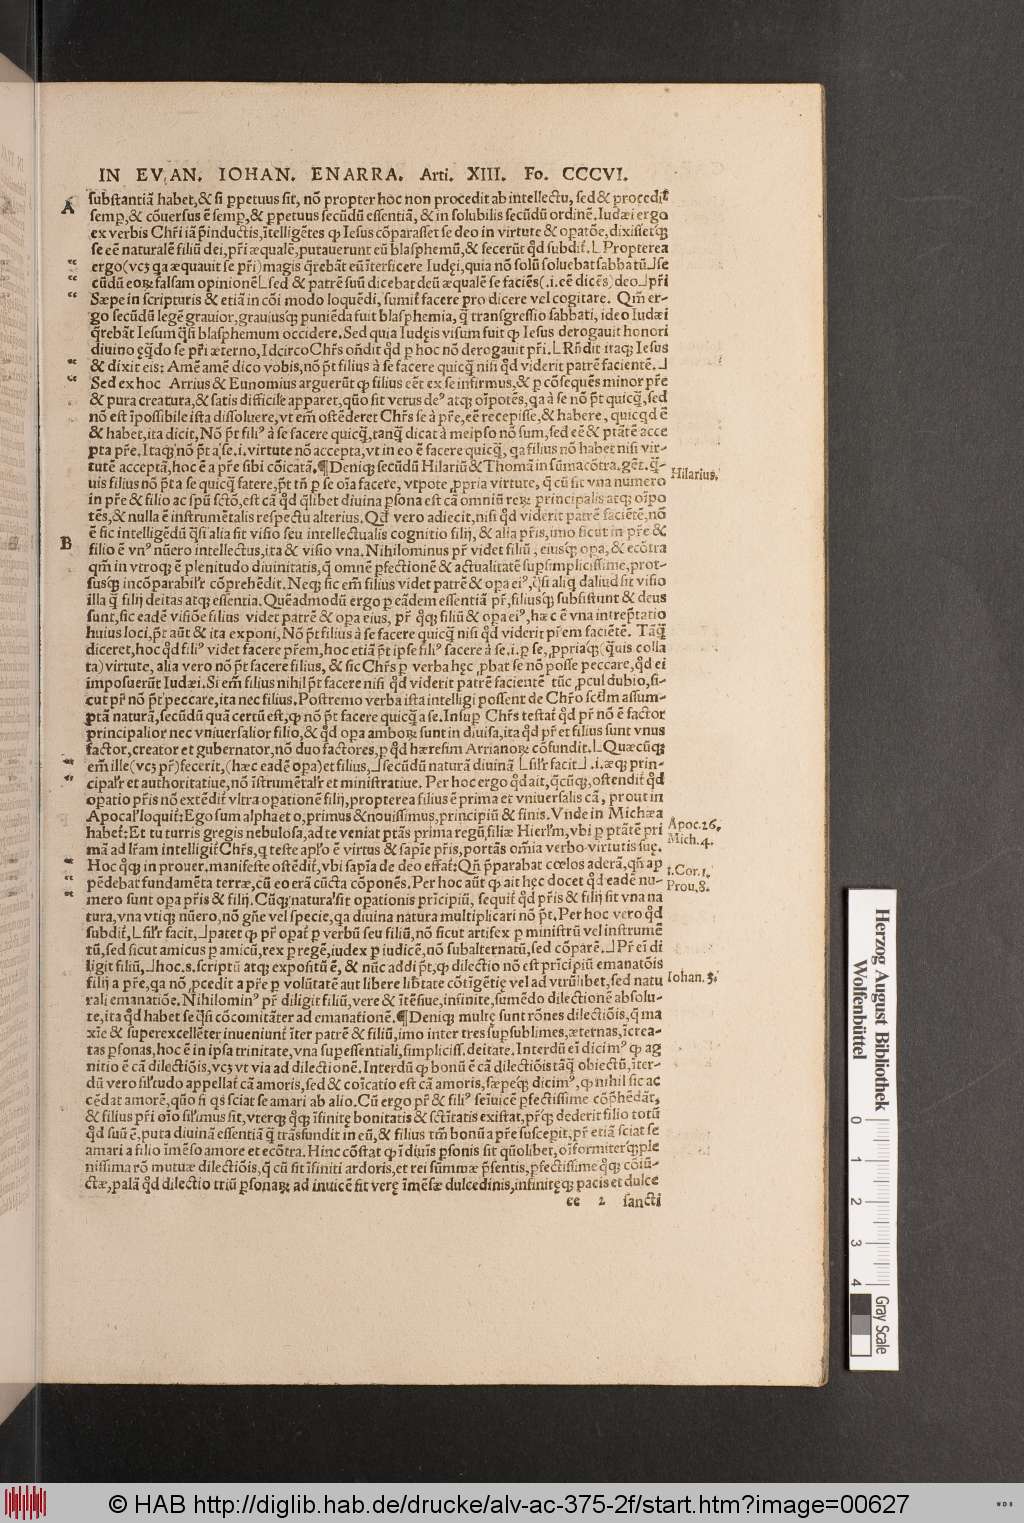 IN EVAN. IOHAN. ENARRA. Arti. XIII. Fo. CCCVI.
A
substantiā habet,& si ꝑpetuus sit, nō propter hoc non procedit ab intellectu, sed & procedit
semꝑ,& cōuersus ē semꝑ,& ꝑpetuus secūdū essentiā, & in solubilis secūdū ordinē. Iudæi ergo
ex verbis Chr̄i iā p̄inductis, ītelligētes ꝙ Iesus cōparasset se deo in virtute & opatōe, dixissetꝗ
se eē naturalē filiū dei, pr̄i æqualē, putauerunt eū blasphemū, & fecerūt qd̄ subdit̄. L Propterea
ergo (vcꝫ qa æquauit se pr̄i) magis q̄rebāt eū īterficere Iudęi, quia nō solū soluebat sabbatū ⅃ se
cūdū eoꝝ falsam opinionē L sed & patrē suū dicebat deū æqualē se faciēs (.i. eē dicēs) deo ⅃ pr̄i
Sæpe in scripturis & etiā in cōi modo loquēdi, sumit̄ facere pro dicere vel cogitare. Qm̄ er-
go secūdū legē grauior, grauiusꝗ puniēda fuit blasphemia, q̄ transgressio sabbati, ideo Iudæi
q̄rebāt Iesum q̄si blasphemum occidere. Sed quia Iudęis visum fuit ꝙ Iesus derogauit honori
diuino ęq̄do se pr̄i æterno, Idcirco Chr̄s on̄dit qd̄ ꝑ hoc nō derogauit pr̄i. L Rn̄dit itaꝗ Iesus
& dixit eis: Amē amē dico vobis, nō p̄t filius à se facere quicq̄ nisi qd̄ viderit patrē facientē. ⅃
Sed ex hoc Arrius & Eunomius arguerūt ꝙ filius eēt ex se infirmus, & ꝑ cōsequēs minor pr̄e
& pura creatura, & satis difficile apparet, quō sit verus deꝰ atꝗ oīpotēs, qa à se nō p̄t quicq̄, sed
nō est īpossibile ista dissoluere, vt em̄ ostēderet Chr̄s se à pr̄e, eē recepisse, & habere, quicqd ē
& habet, ita dicit, Nō p̄t filiꝰ à se facere quicq̄, tanq̄ dicat à meipso nō sum, sed eē & ptātē acce
pta pr̄e. Itaꝗ nō p̄t a se, .i. virtute nō accepta, vt in eo ē facere quicq̄, qa filius nō habet nisi vir-
tutē acceptā, hoc ē a pr̄e sibi cōicatā. ¶ Deniꝗ secūdū Hilariū & Thomā in sūma cōtra. gēt. q̄-
uis filius nō p̄t a se quicq̄ facere, p̄t tn̄ ꝑ se oīa facere, vtpote ꝓpria virtute, q̄ cū sit vna numero
Hilarius.
in pr̄e & filio ac spū sctō, est cā qd̄ q̄libet diuina ꝑsona est cā omniū reꝝ principalis atꝗ oīpo
tēs, & nulla ē instrumētalis respectu alterius. Qd̄ vero adiecit, nisi qd̄ viderit patrē faciētē, nō
B
ē sic intelligēdū q̄si alia sit visio seu intellectualis cognitio filij, & alia pr̄is, imo sicut in pr̄e &
filio ē vnꝰ nūero intellectus, ita & visio vna. Nihilominus pr̄ videt filiū, eiusꝗ opa, & ecōtra
qm̄ in vtroꝗ ē plenitudo diuinitatis, q̄ omnē ꝑfectionē & actualitatē supsimplicissime, prot-
susꝗ incōparabilr̄ cōprehēdit. Neꝗ sic em̄ filius videt patrē & opa eiꝰ, q̄si aliq̄ d aliud sit visio
illa q̄ filij deitas atꝗ essentia. Quēadmodū ergo ꝑ eādem essentiā pr̄, filiusꝗ subsistunt & deus
sunt, sic eadē visiōe filius videt patrē & opa eius, pr̄ qꝗ filiū & opa eiꝰ, hæc ē vna intrep̄tatio
huius loci, p̄t aūt & ita exponi, Nō p̄t filius à se facere quicq̄ nisi qd̄ viderit pr̄em faciētē. Tāq̄
diceret, hoc qd̄ filiꝰ videt facere pr̄em, hoc etiā p̄t ipse filiꝰ facere à se .i. ꝑ se, ꝓpriaꝗ (q̄uis colla
ta) virtute, alia vero nō p̄t facere filius, & sic Chr̄s ꝑ verba hęc ꝓbat se nō posse peccare, qd̄ ei
imposuerūt Iudæi. Si em̄ filius nihil p̄t facere nisi qd̄ viderit patrē facientē tūc ꝓcul dubio, si-
cut pr̄ nō p̄t peccare, ita nec filius. Postremo verba ista intelligi possent de Chr̄o scd̄m assum-
ptā naturā, secūdū quā certū est, ꝙ nō p̄t facere quicq̄ a se. Insuꝑ Chr̄s testat̄ qd̄ pr̄ nō ē factor
principalior nec vniuersalior filio, & qd̄ opa amboꝝ sunt in diuisa, ita qd̄ pr̄ et filius sunt vnus
factor, creator et gubernator, nō duo factores, ꝑ qd̄ hæresim Arrianoꝝ cōfundit. L Quæcūꝗ
em̄ ille (vcꝫ pr̄) fecerit, (hæc eadē opa) et filius, ⅃ secūdū naturā diuinā L silr̄ facit ⅃ .i. æꝗ prin-
cipalr̄ et authoritatiue, nō īstrumētalr̄ et ministratiue. Per hoc ergo qd̄ ait, q̄cūꝗ, ostendit̄ qd̄
opatio pr̄is nō extēdit̄ vltra opationē filij, propterea filius ē prima et vniuersalis cā, prout in
Apocal' loquit̄: Ego sum alpha et o, primus & nouissimus, principiū & finis. Vnde in Michæa
habet̄: Et tu turris gregis nebulosa, ad te veniat ptās prima regū, filiæ Hierl'm, vbi ꝑ ptātē pri
Apoc. 26.
mā ad lr̄am intelligit̄ Chr̄s, q teste apl'o ē virtus & sapīe pr̄is, portās om̄ia verbo virtutis suę.
Mich. 4.
Hoc qꝗ in prouer. manifeste ostēdit̄, vbi sapīa de deo effat̄: Qn̄ p̄parabat cœlos aderā, qn̄ aꝑ
1. Cor. 1.
pēdebat fundamēta terræ, cū eo erā cūcta cōponēs. Per hoc aūt ꝙ ait hęc docet qd̄ eadē nu-
Prou. 8.
mero sunt opa pr̄is & filij. Cūꝗ natura sit opationis prīcipiū, sequit̄ qd̄ pr̄is & filij sit vna na
tura, vna vtiꝗ nūero, nō gn̄e vel specie, qa diuina natura multiplicari nō p̄t. Per hoc vero qd̄
subdit̄, L silr̄ facit, ⅃ patet ꝙ pr̄ opat̄ ꝑ verbū seu filiū, nō sicut artifex ꝑ ministrū vel instrumē
tū, sed sicut amicus ꝑ amicū, rex ꝑ regē, iudex ꝑ iudicē, nō subalternatū, sed cōparē. ⅃ Pr̄ ei di
ligit filiū, ⅃ hoc. s. scriptū atꝗ expositū ē, & nūc addi p̄t, ꝙ dilectio nō est prīcipiū emanatōis
filij a pr̄e, qa nō ꝓcedit a pr̄e ꝑ volūtatē aut libere libr̄tate cōtīgētię vel ad vtrūlibet, sed natu
Iohan. 3.
rali emanatiōe. Nihilominꝰ pr̄ diligit filiū, vere & ītēsiue, infinite, sumēdo dilectionē absolu-
te, ita qd̄ habet se q̄si cōcomitāter ad emanationē. ¶ Deniꝗ multę sunt rōnes dilectiōis, q̄ ma
xīe & superexcellēter inueniunt̄ īter patrē & filiū, imo inter tres supsublimes, æternas, īcrea-
tas ꝑsonas, hoc ē in ipsa trinitate, vna supessentiali, simpliciss. deitate. Interdū eī dicimꝰ ꝙ ag
nitio ē cā dilectiōis, vcꝫ vt via ad dilectionē. Interdū ꝙ bonū ē cā dilectiōis tāq̄ obiectū, īter-
dū vero sil'tudo appellat̄ cā amoris, sed & coīcatio est cā amoris, sæpeꝗ dicimꝰ, ꝙ nihil sic ac
cēdat amorē, quō si qs sciat se amari ab alio. Cū ergo pr̄ & filiꝰ seīuicē ꝑfectissime cōp̄hēdāt,
& filius pr̄i oīo sil'imus sit, vterꝗ qꝗ īfinitę bonitatis & sctītatis existat, pr̄ꝗ dederit filio totū
qd̄ suū ē, puta diuinā essentiā q̄ trāsfundit in eū, & filius tm̄ bonū a pr̄e susceꝑit, pr̄ etiā sciat se
amari a filio īmēso amore et ecōtra. Hinc cōstat ꝙ ī diuīs ꝑsonis sit quōlibet, oīformiterꝗ ple
nissima rō mutuæ dilectiōis, q̄ cū sit īfiniti ardoris, et rei sūmæ p̄sentis, ꝑfectissime qꝗ cōiū-
ctæ, palā qd̄ dilectio triū ꝑsonaꝝ ad inuicē sit verę īmēsæ dulcedinis, infinitęꝗ pacis et dulce
ee 2 sancti
Herzog August Bibliothek
Wolfenbüttel
0 1 2 3 4
Gray Scale
© HAB http://diglib.hab.de/drucke/alv-ac-375-2f/start.htm?image=00627